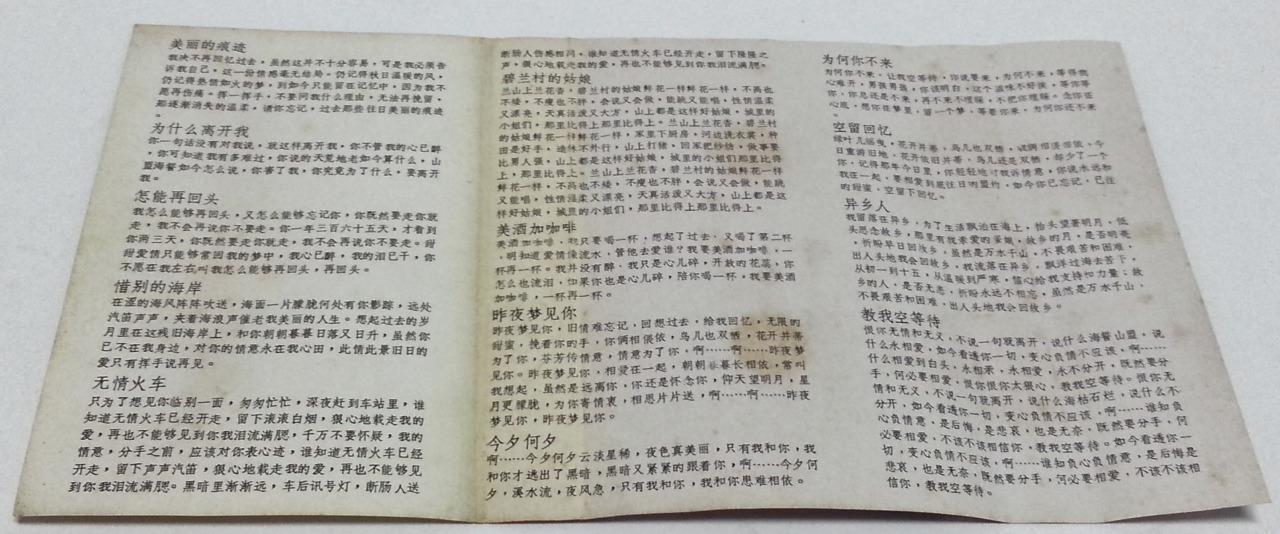 美丽的痕迹
我决不再回忆过去，虽然这并不十分容易，可是我必须告
诉我自己，这一份情感毫无结局。仍记得秋日温暖的风，
仍记得热情如火的梦，到如今只能留在记忆中，因为我不
愿再伤痛。挥一挥手，不要问我什么理由，无法再挽留，
那逐渐消失的温柔，请你忘记，过去那些往日美丽的痕迹
。
为什么离开我
你一句话没有对我说，就这样离开我，你不管我的心已醉
，你可知道我有多难过，你说的天荒地老如今算什么，山
盟海誓如今怎么说，你害了我，你究竟为了什么，要离开
我。
怎能再回头
我怎么能够再回头，又怎么能够忘记你，你既然要走你就
走，我不会再说你不要走。你一年三百六十五天，才看到
你两三天，你既然要走你就走，我不会再说你不要走。甜
甜爱情只能够常回我的梦中，我心已醉，我的泪已干，你
不愿在我左右叫我怎么能够再回头，再回头。
惜别的海岸
在涩的海风阵阵吹送，海面一片朦胧何处有你影踪，远处
汽笛声声，夹着海浪声催老我美丽的人生。想起过去的岁
月里在这残旧海岸上，和你朝朝暮暮日落又日升，虽然你
已不在我身边，对你的情意永在我心田，此情此景旧日的
爱只有挥手说再见。
无情火车
只为了想见你临别一面，匆匆忙忙，深夜赶到车站里，谁
知道无情火车已经开走，留下滚滚白烟，狠心地载走我的
爱，再也不能够见到你我泪流满腮，千万不要怀疑，我的
情意，分手之前，应该对你表心迹，谁知道无情火车已经
开走，留下声声汽笛，狠心地载走我的爱，再也不能够见
到你我泪流满腮。黑暗里渐渐远，车后讯号灯，断肠人送
断肠人伤感相问，谁知道无情火车已经开走，留下隆隆之
声，狠心地载走我的爱，再也不能够见到你我泪流满腮。
碧兰村的姑娘
兰山上兰花香，碧兰村的姑娘鲜花一样鲜花一样，不高也
不矮，不瘦也不胖，会说又会做，能跳又能唱，性情温柔
又漂亮，天真活泼又大方，山上都是这样好姑娘，城里的
小姐们，那里比得上那里比得上。兰山上兰花香，碧兰村
的姑娘鲜花一样鲜花一样，家里下厨房，河边洗衣裳，种
田是好手，造林不外行，山上打猪，回家把纱纺，做事要
比男人强，山上都是这样好姑娘，城里的小姐们那里比得
上，那里比得上。兰山上兰花香，碧兰村的姑娘鲜花一样
鲜花一样，不高也不矮，不瘦也不胖，会说又会做，能跳
又能唱，性情温柔又漂亮，天真活泼又大方，山上都是这
样好姑娘，城里的小姐们，那里比得上那里比得上。
美酒加咖啡
美酒加咖啡，我只要喝一杯，想起了过去，又喝了第二杯
，明知道爱情像流水，管他去爱谁？我要美酒加咖啡，一
杯再一杯。我并没有醉，我只是心儿碎，开放的花蕊，你
怎么也流泪，如果你也是心儿碎，陪你喝一杯，我要美酒
加咖啡，一杯再一杯。
昨夜梦见你
昨夜梦见你，旧情难忘记，回想过去，给我回忆，无限的
甜蜜，挽着你的手，你俩相偎依，鸟儿也双栖，花开并蒂
为了你，芬芳传情意，情意为了你，啊……啊……昨夜梦
见你。昨夜梦见你，相爱在一起，朝朝暮暮长相依，常叫
我想起，虽然是远离你，你还是怀念你，仰天望明月，星
月更朦胧，为你寄情衷，相思片片送，啊……啊……昨夜
梦见你，昨夜梦见你。
今夕何夕
啊……今夕何夕云淡星稀，夜色真美丽，只有我和你，我
和你才逃出了黑暗，黑暗又紧紧的跟着你，啊……今夕何
夕，溪水流，夜风急，只有我和你，我和你患难相依。
为何你不来
为何你不来，让我空等待，你说要来，为何不来，等得我
心难开，男孩男孩，你该明白，这个滋味不好挨，等你等
你，你总还是不来，再不来不理睬，不把你理睬。念你在
心底，想你在梦里，留一个梦，等着你来，为何你还不来
。
空留回忆
绿叶儿摇曳，花开并蒂，鸟儿也双栖，依偎相偎相依，今
日重游旧地，花开依旧并蒂，鸟儿还是双栖，却少了一个
你，记得那年今日里，你轻轻对我诉情意，你说永远和
我在一起，要相爱到底往日的盟约，如今你已忘记，已往
的甜蜜，空留下回忆。
异乡人
我留落在异乡，为了生活飘泊在海上，抬头望著明月，低
头思念故乡，那里有我亲爱的家娘，故乡的月，是否明亮
，祈盼早日回故乡，虽然是万水千山，不畏艰苦和困难，
出人头地我会回故乡。我流落在异乡，飘洋过海去苦干，
从初一到十五，从温暖到严寒，信心给我支持和力量，故
乡的人，是否无恙，祈盼永远不相忘，虽然是万水千山，
不畏艰苦和困难，出人头地我会回故乡。
教我空等待
恨你无情和无义，不说一句就离开，说什么海誓山盟，说
什么水相爱，如今看透你一切，变心负情不应该，啊……
什么相爱到白头，永相亲，永相爱，永不分开，既然要分
手，何必要相爱，恨你恨你太狠心，教我空等待。恨你无
情和无义，不说一句就离开，说什么海枯石烂，说什么不
分开，如今看透你一切，变心负情不应该，啊……谁知负
心负情意，是后悔，是悲哀，也是无奈，既然要分手，何
必要相爱，不该不该相信你，教我空等待。如今看透你一
切，变心负情不应该，啊……谁知负心负情意，是后悔是
悲哀，也是无奈，既然要分手，何必要相爱，不该不该相
信你，教我空等待。